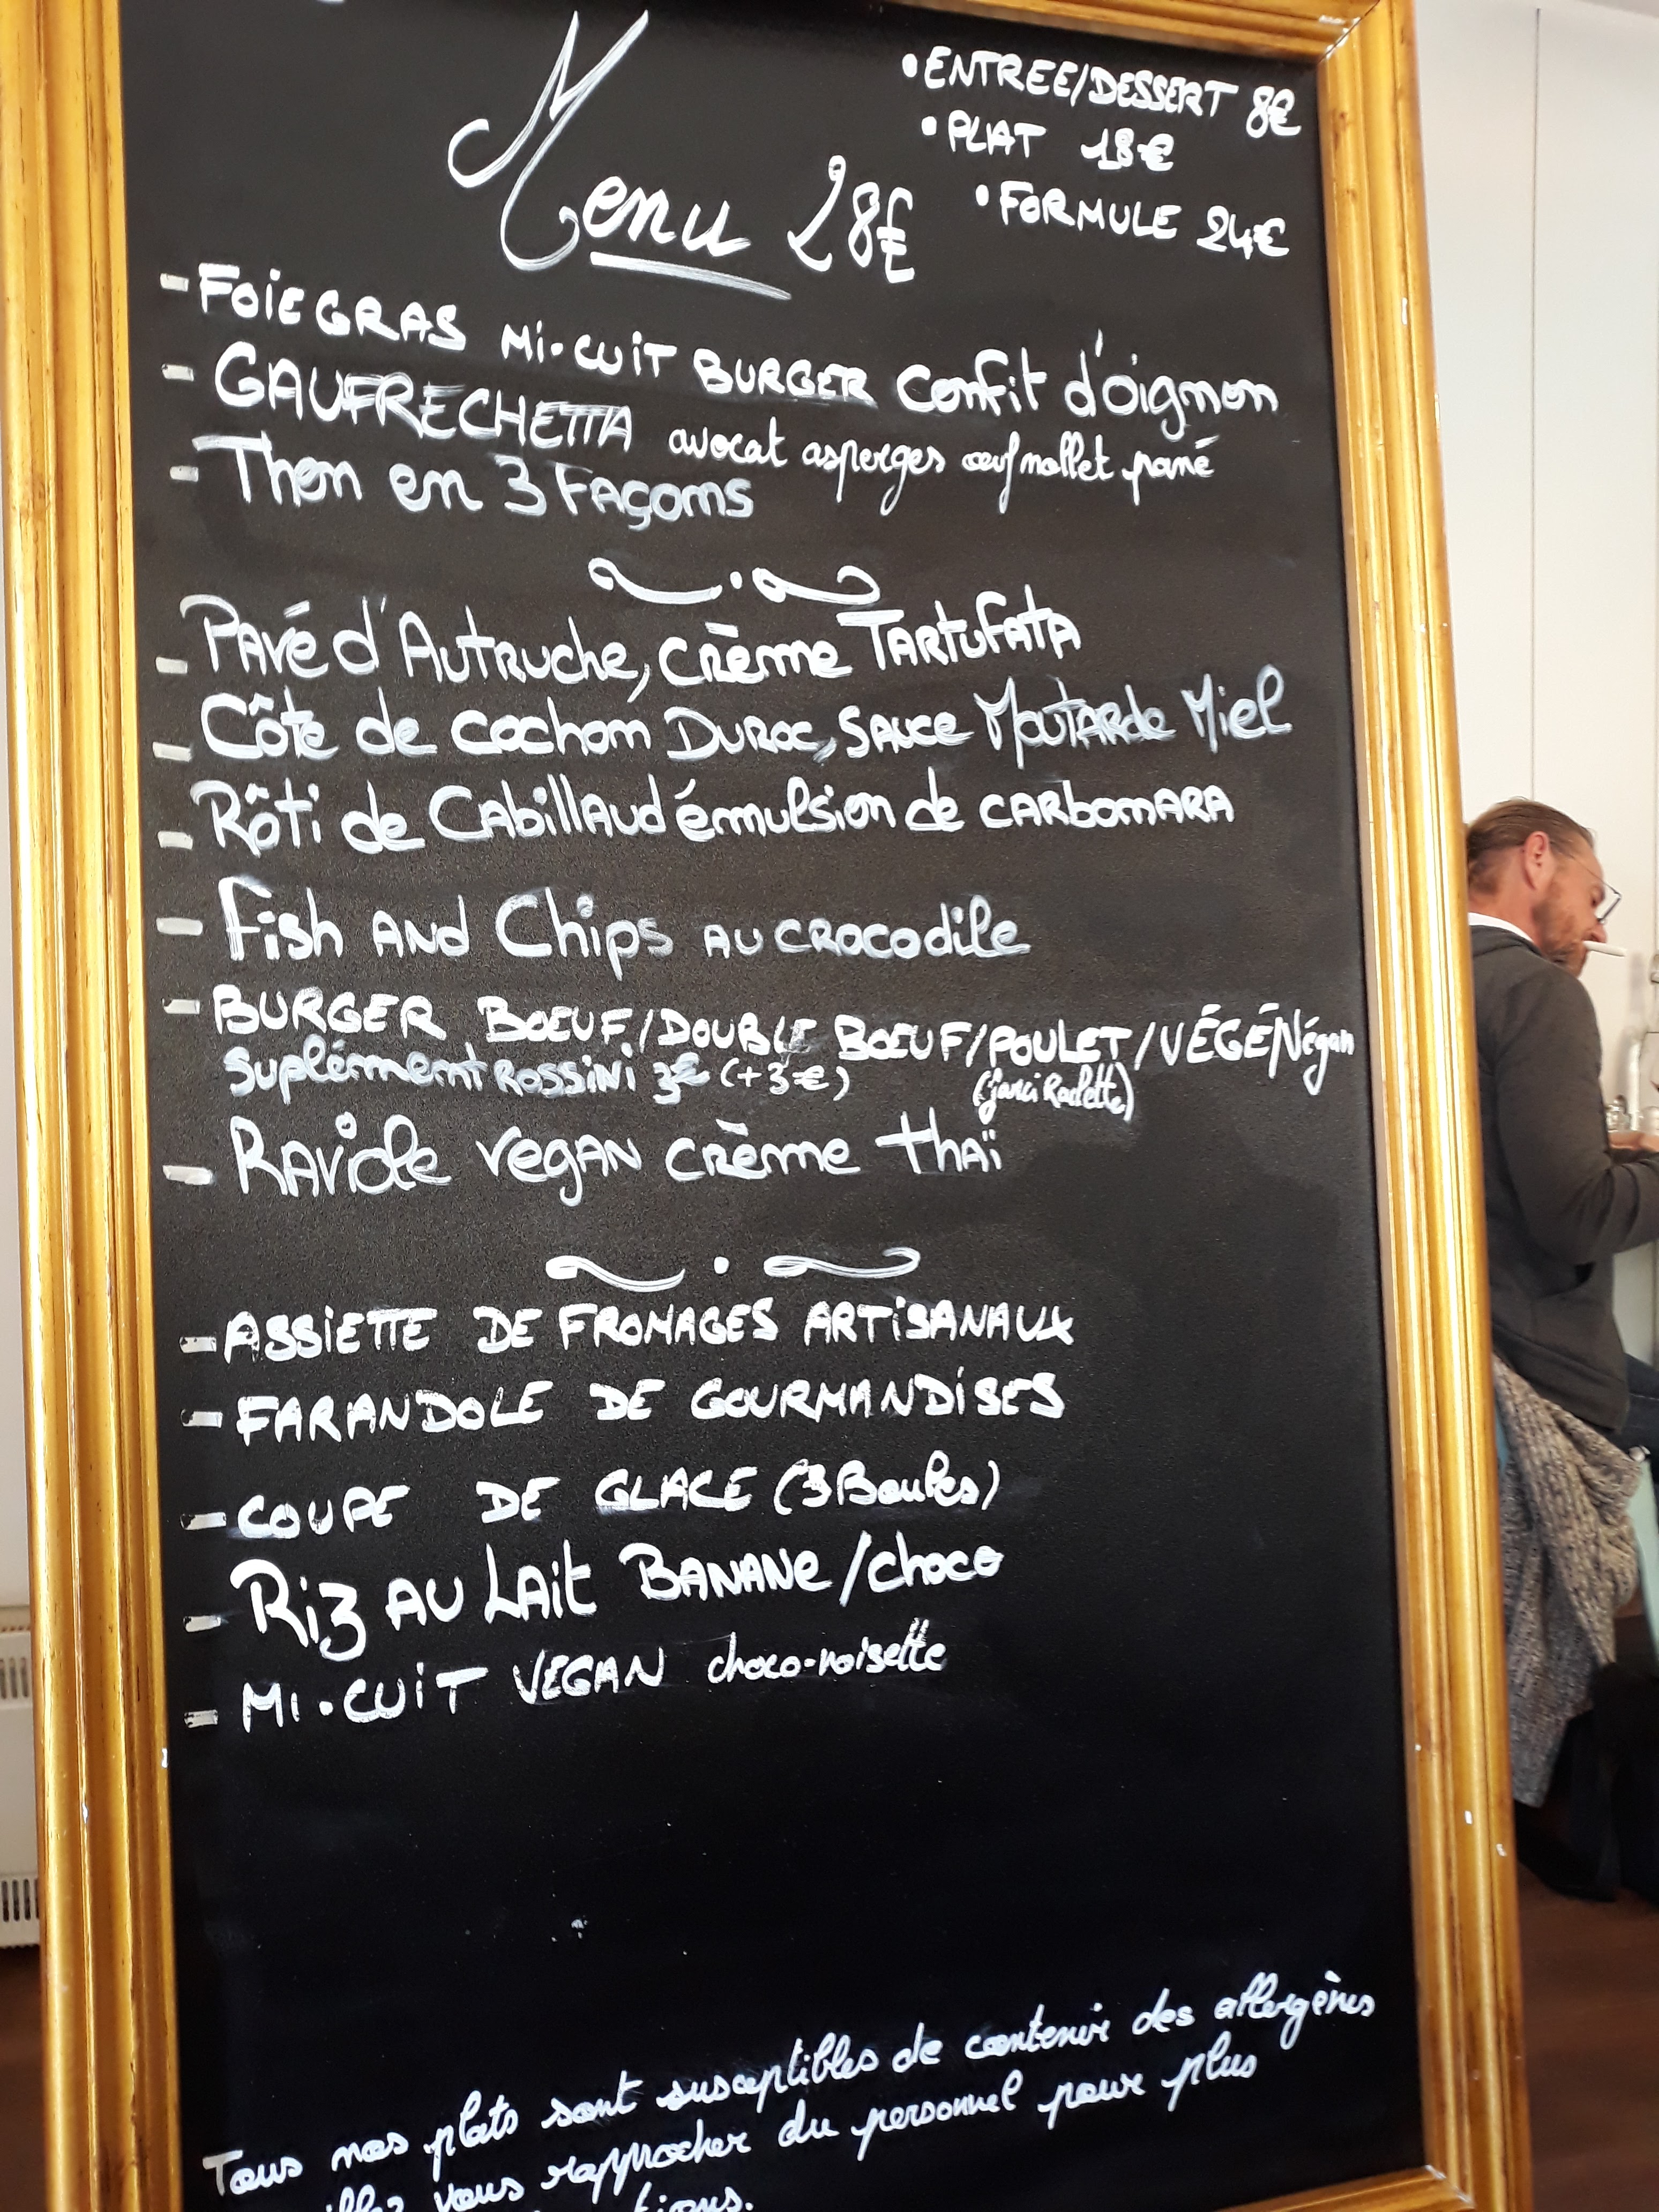 • ENTREE/DESSERT 8€
• PLAT 18€
• FORMULE 24€
Menu 28€
- FOIE GRAS Mi-CUIT BURGER Confit d'oignon
- GAUFRECHETTA avocat asperges œuf mollet pané
- Thon en 3 Façons
- Pavé d'Autruche, crème Tartufata
- Côte de cochon Duroc, Sauce Moutarde Miel
- Rôti de Cabillaud émulsion de carbonara
- Fish and Chips au crocodile
- BURGER BOEUF/DOUBLE BOEUF/POULET/VÉGÉ/Végan
Suplément ROSSiNi 3€ (+3€) (farci Raclette)
- Raviole vegan crème thaï
- ASSiETTE DE FROMAGES ARTiSANAUX
- FARANDOLE DE GOURMANDiSES
- COUPE DE GLACE (3 Boules)
- Riz au Lait Banane/choco
- Mi-CUiT VEGAN choco-noisette
Tous nos plats sont susceptibles de contenir des allergènes
vous rapprocher du personnel pour plus